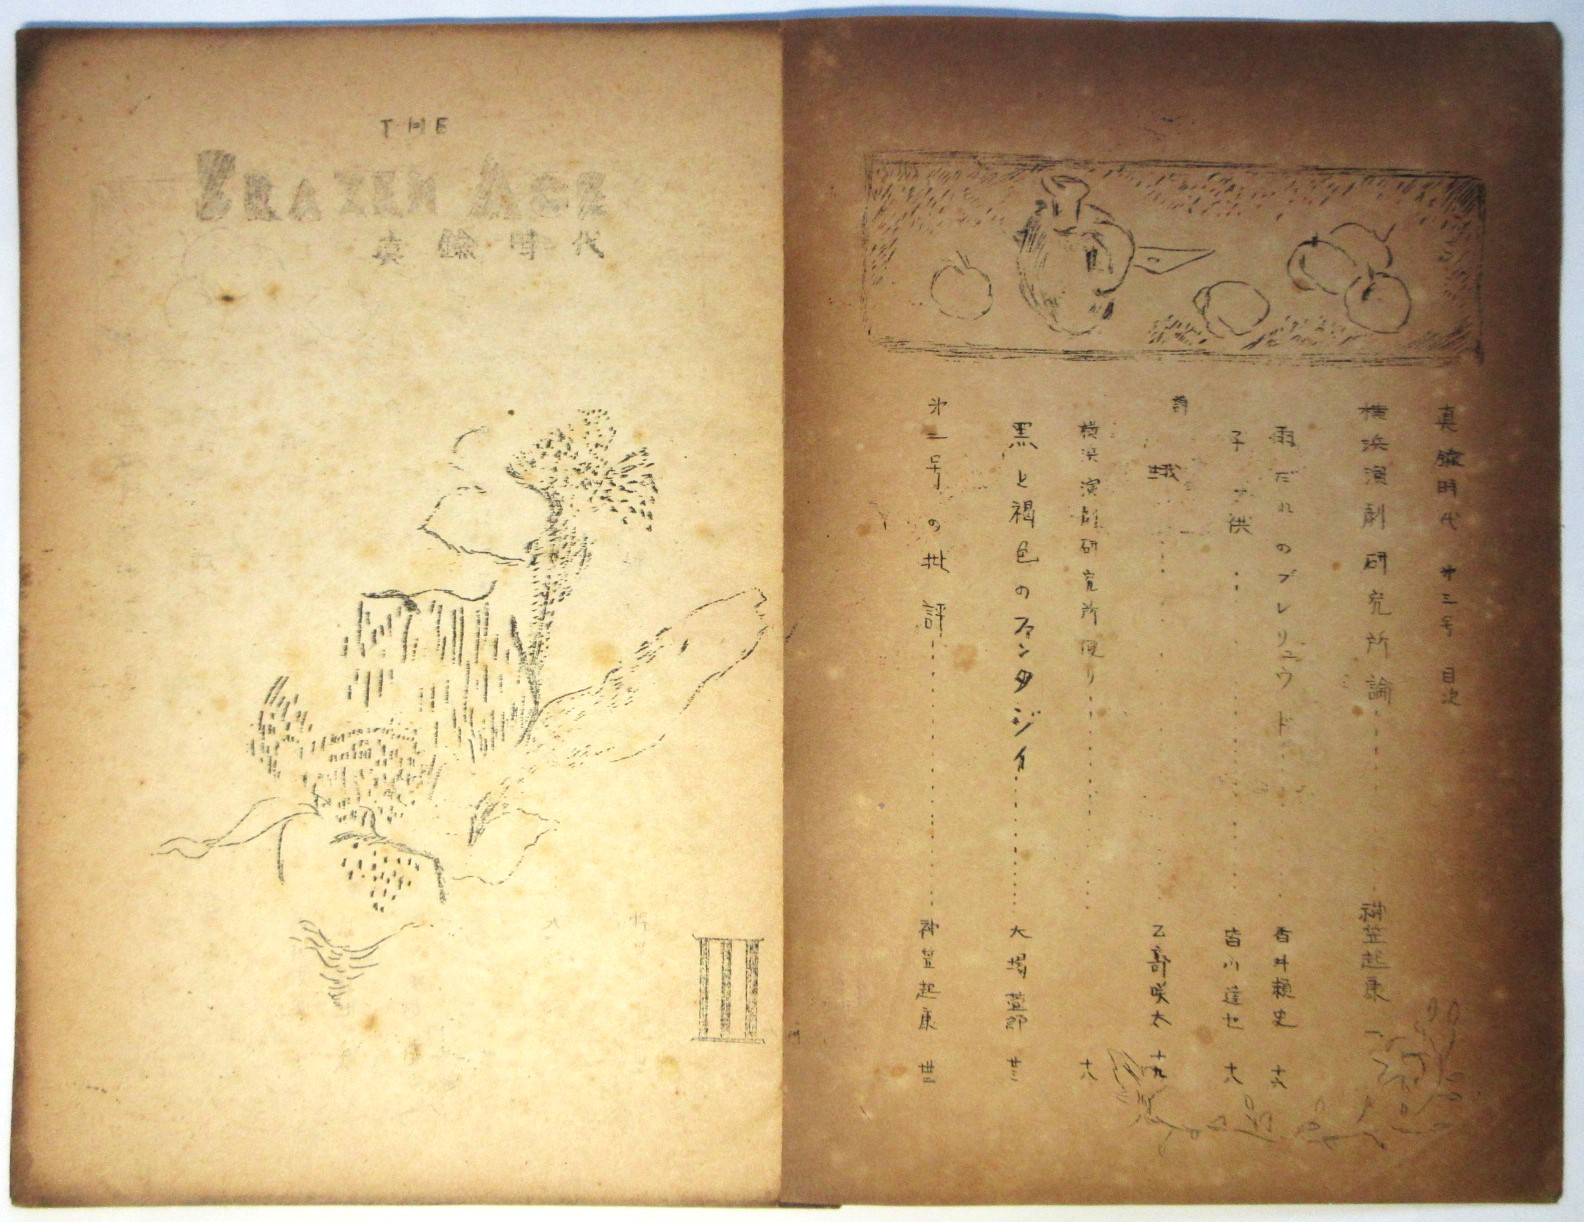 THE
BRAZEN AGE
真鍮時代
III
真鍮時代 第三号 目次
横浜演劇研究所論 神笠起康 一
雨だれのプレリュウド 香井頼史 十六
子供 皆川達也 十八
詩
蛾 乙部咲太 十九
横浜演劇研究所便り 十八
黒と褐色のファンタジイ 大場 廿三
第二号の批評 神笠起康 卅三